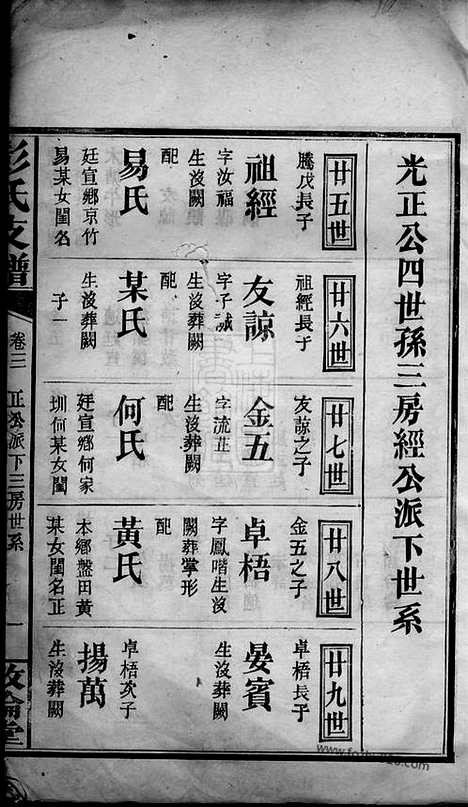 光正公四世孫三房經公派下世系
廿五世
騰戊長子
祖經
字汝福
生沒闕
配
易氏
廷宣鄉京竹
易某女閨名
廿六世
祖經長子
友諒
字子誠
生沒葬闕
配
某氏
生沒葬闕
子一
廿七世
友諒之子
金五
字流芷
生沒葬闕
配
何氏
廷宣鄉何家
圳何某女閨
廿八世
金五之子
卓梧
字鳳喈生沒
闕葬掌形
配
黃氏
本鄉盤田黃
某女閨名正
廿九世
卓梧長子
晏賓
生沒葬闕
卓梧次子
揚萬
生沒葬闕
彭氏支譜
卷三
正公派下三房世系
一
敦倫堂